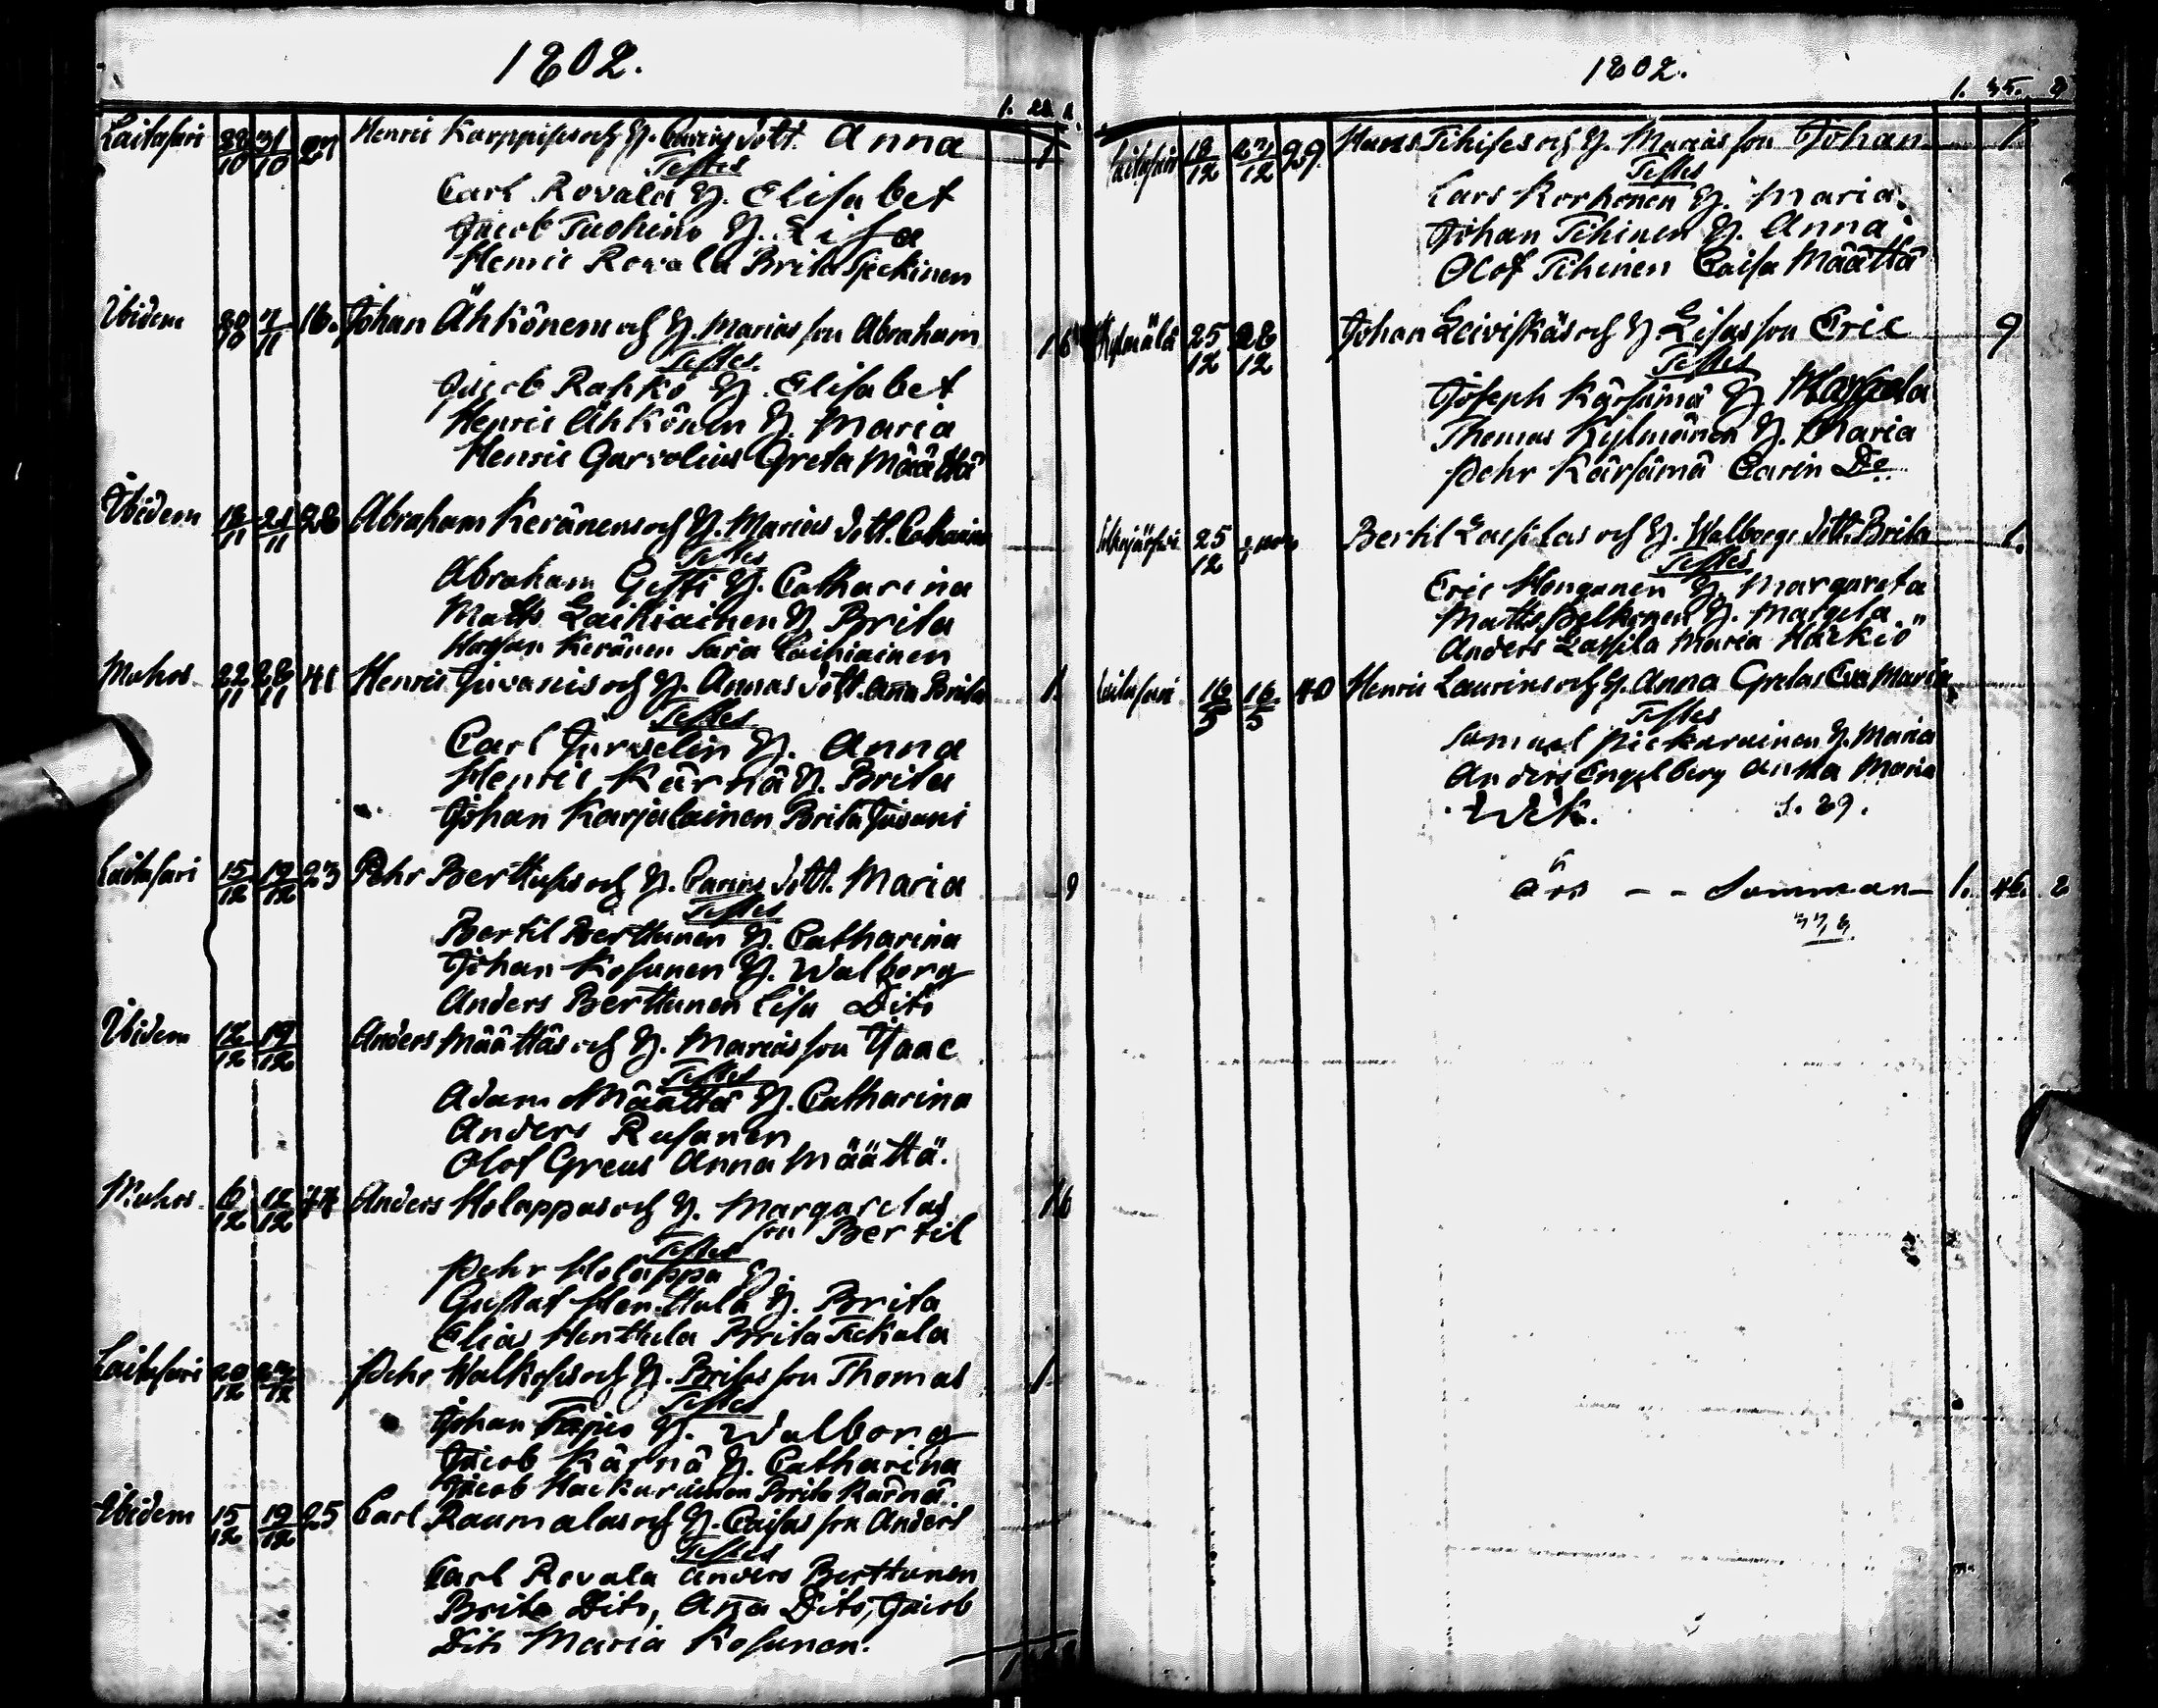 1802.
1. 22. 2.
Laitasari 28/10 31/10 27 Henric Karppises och H. Carins dott. Anna 1
Testes
Carl Rovala H. Elisabet
Jacob Tuohino H. Lisa
Henric Rovala Brita Pjeckinen
Ibidem 30/10 7/11 16. Johan Ähkönens och H. Marias son Abraham 16
Testes
Jacob Rahko H. Elisabet
Henric Ähkönen H. Maria
Henric Garvolius Greta Määttä
Ibidem 18/11 21/11 28 Abraham Keränens och H. Marias dott. Catharina
Testes
Abraham Gessti H. Catharina
Matts Laikiainen H. Brita
Keränen Sara Laihiainen
Muhos 22/11 28/11 41 Henric Juvanis och H. Annas dott. Anna Brita 1.
Testes
Carl Jurvelin H. Anna
Henric Kärnä H. Brita
Johan Karjalainen Brita Juvani
Laitasari 15/12 19/12 23 Pehr Berttuses och H. Carins dott. Maria 9
Testes
Bertil Berttunen H. Catharina
Johan Kosunen H. Walborg
Anders Berttunen Lisa Dito
Ibidem 12/12 19/12 Anders Määttäs och H. Marias son Isaac
Testes
Adam Määttä H. Catharina
Anders Rusanen
Olof Greus Anna Määttä.
Muhos 6/12 12/12 44 Anders Holappas och H. Margaretas 16
son Bertil
Testes
Pehr Holappa H.
Gustaf Henttula H. Brita
Elias Henttula Brita Tickala
Laitasari 20/12 27/12 Pehr Walkoses och H. Britas son Thomas 1.
Testes
Johan Tapio H. Walborg
Jacob Kärnä H. Catharina
Jacob Hackarainen Brita Kärnä
Ibidem 15/12 19/12 25 Carl Raumalas och H. Caisas son Anders
Testes
Carl Rovala Anders Berttunen
Brita Dito, Anna Dito, Jacob
Dito Maria Kosunen.
1802.
1. 35. 2
Laitasari 19/12 27/12 29. Hans Tihises och H. Marias son Johan 1.
Testes
Lars Korhonen H. Maria.
Johan Tihinen H. Anna.
Olof Tihinen Caisa Määttä
Kylmälä 25/12 28/12 Johan Leiviskäs och H. Lisas son Eric 9
Testes
Joseph Kärsämä H. Margeta
Thomas Kylmänen H. Maria
Pehr Kärsämä Carin Do
25/12 Bertil Lassilas och H. Walborgs dott. Brita 1.
Testes
Eric Honganen H. Margareta
Matts Pelkonen H. Margeta
Anders Lassila Maria Härkiö
Laitasari 16/5 16/5 40 Henric Laurins och H. Anna Gretas Eva Maria
Testes
Samuel Pickarainen H. Maria
Anders Engelberg Anna Maria
Wik. s. 29.
års - - Summan 1. 46. 2